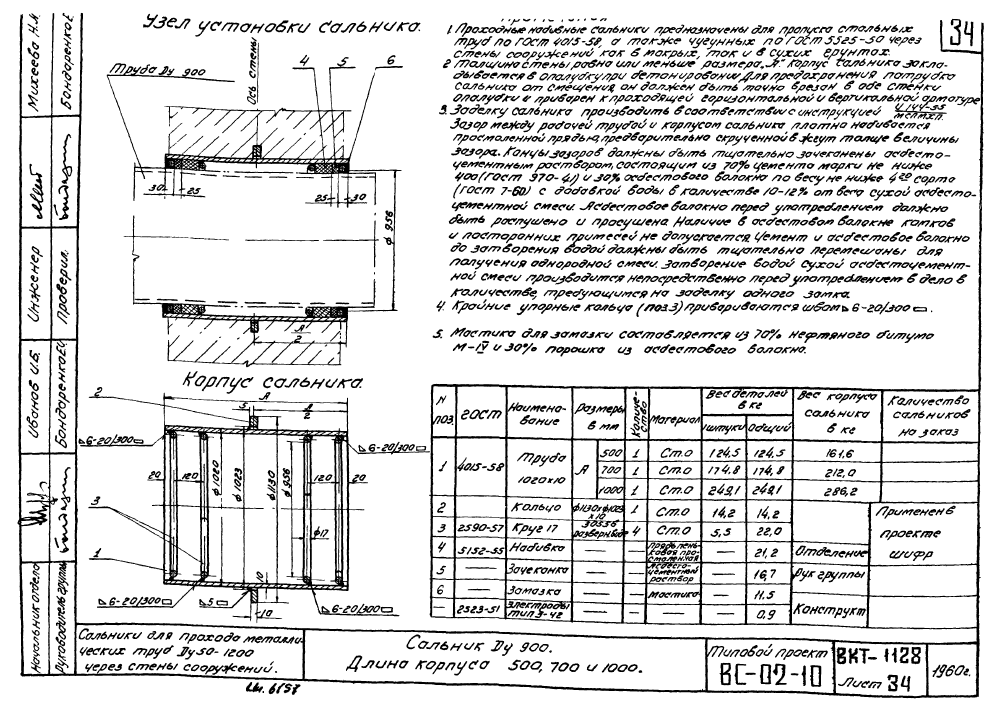 Узел установки сальника.
34
Труба Ду 900
Ось стены
4 5 6
30 25
25 30
ф 956
А
2
Корпус сальника.
А
А
2
2
5
⊿6-20/300▭
⊿6-20/300▭
20 120 ф1020 ф1023 ф1130 ф956 120 20
ф17
3
1
10
⊿6-20/300▭
⊿5▭
⊿6-20/300▭
10
1. Проходные набивные сальники предназначены для пропуска стальных
труб по ГОСТ 4015-58, а также чугунных по ГОСТ 5525-50 через
стены сооружений как в мокрых, так и в сухих грунтах.
2 Толщина стены равна или меньше размера „А". Корпус сальника закла-
дывается в опалубку при бетонировании. Для предохранения патрубка
сальника от смещения, он должен быть точно врезан в обе стенки
опалубки и приварен к проходящей горизонтальной и вертикальной арматуре
3. Заделку сальника производить в соответствии с инструкцией И144-55
МСПМХП.
Зазор между рабочей трубой и корпусом сальника плотно набивается
просмоленной прядью, предварительно скрученной в жгут толще величины
зазора. Концы зазоров должны быть тщательно зачеканены асбесто-
цементным раствором состоящим из 70% цемента марки не ниже
400 (ГОСТ 970-41) и 30% асбестового волокна по весу не ниже 4го сорта
(ГОСТ 7-60) с добавкой воды в количестве 10-12% от веса сухой асбесто-
цементной смеси. Асбестовое волокно перед употреблением должно
быть распушено и просушена. Наличие в асбестовом волокне комков
и посторонних примесей не допускается. Цемент и асбестовое волокно
до затворения водой должны быть тщательно перемешаны для
получения однородной смеси. Затворение водой сухой асбестоцемент-
ной смеси производится непосредственно перед употреблением в дело в
количестве, требующимся на заделку одного замка.
4. Крайние упорные кольца (поз.3) привариваются швом ⊿6-20/300▭.
5. Мастика для замазки составляется из 70% нефтяного битума
М-IV и 30% порошка из асбестового волокна.
N поз. ГОСТ Наименование Размеры в мм Количество Материал Вес деталей в кг штуки общий Вес корпуса сальника в кг Количество сальников на заказ
1 4015-58 Труба 1020х10 А 500 1 Ст.0 124,5 124,5 161,6
700 1 Ст.0 174,8 174,8 212,0
1000 1 Ст.0 249,1 249,1 286,2
2 Кольцо ф1130хф1023 х10 1 Ст.0 14,2 14,2
3 2590-57 Круг 17 3055б разверн.виде 4 Ст.0 5,5 22,0
4 5152-55 Набивка — — Прядь пень-ковая про-смоленная — 21,2
5 Зачеканка — — Асбесто-цементный раствор — 16,7
6 Замазка — — мастика — 11.5
— 2523-51 Электроды тип Э-42 — — — — 0.9
Применен в
проекте
шифр
Отделение
Рук группы
Конструкт
Сальники для прохода металли-
ческих труб Ду 50-1200
через стены сооружений.
Сальник Ду 900.
Длина корпуса 500, 700 и 1000.
Типовой проект
ВС-02-10
ВКТ-1128
Лист 34
1960г.
Начальник отдела
Руководитель группы
Иванов И.Б.
Бондаренко Е.
Инженер
Проверил.
Михеева Н.И.
Бондаренко Е